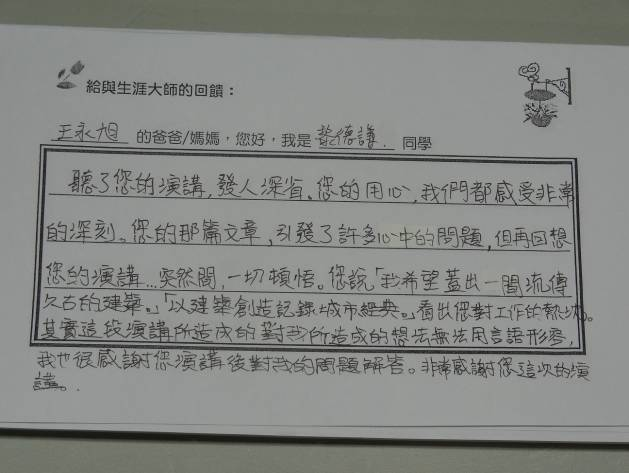 給與生涯大師的回饋：
王永旭 的爸爸/媽媽，您好，我是 德謙 同學
聽了您的演講，發人深省。您的用心，我們都感受非常
的深刻。您的那篇文章，引發了許多心中的問題，但再回想
您的演講…突然間，一切頓悟。您說「我希望蓋出一間流傳
久古的建築。」「以建築創造記錄城市經典。」看出您對工作的熱
其實這段演講所造成的對我所造成的想法無法用言語形容，
我也很感謝您演講後對我的問題解答。非常感謝您這次的演
講。